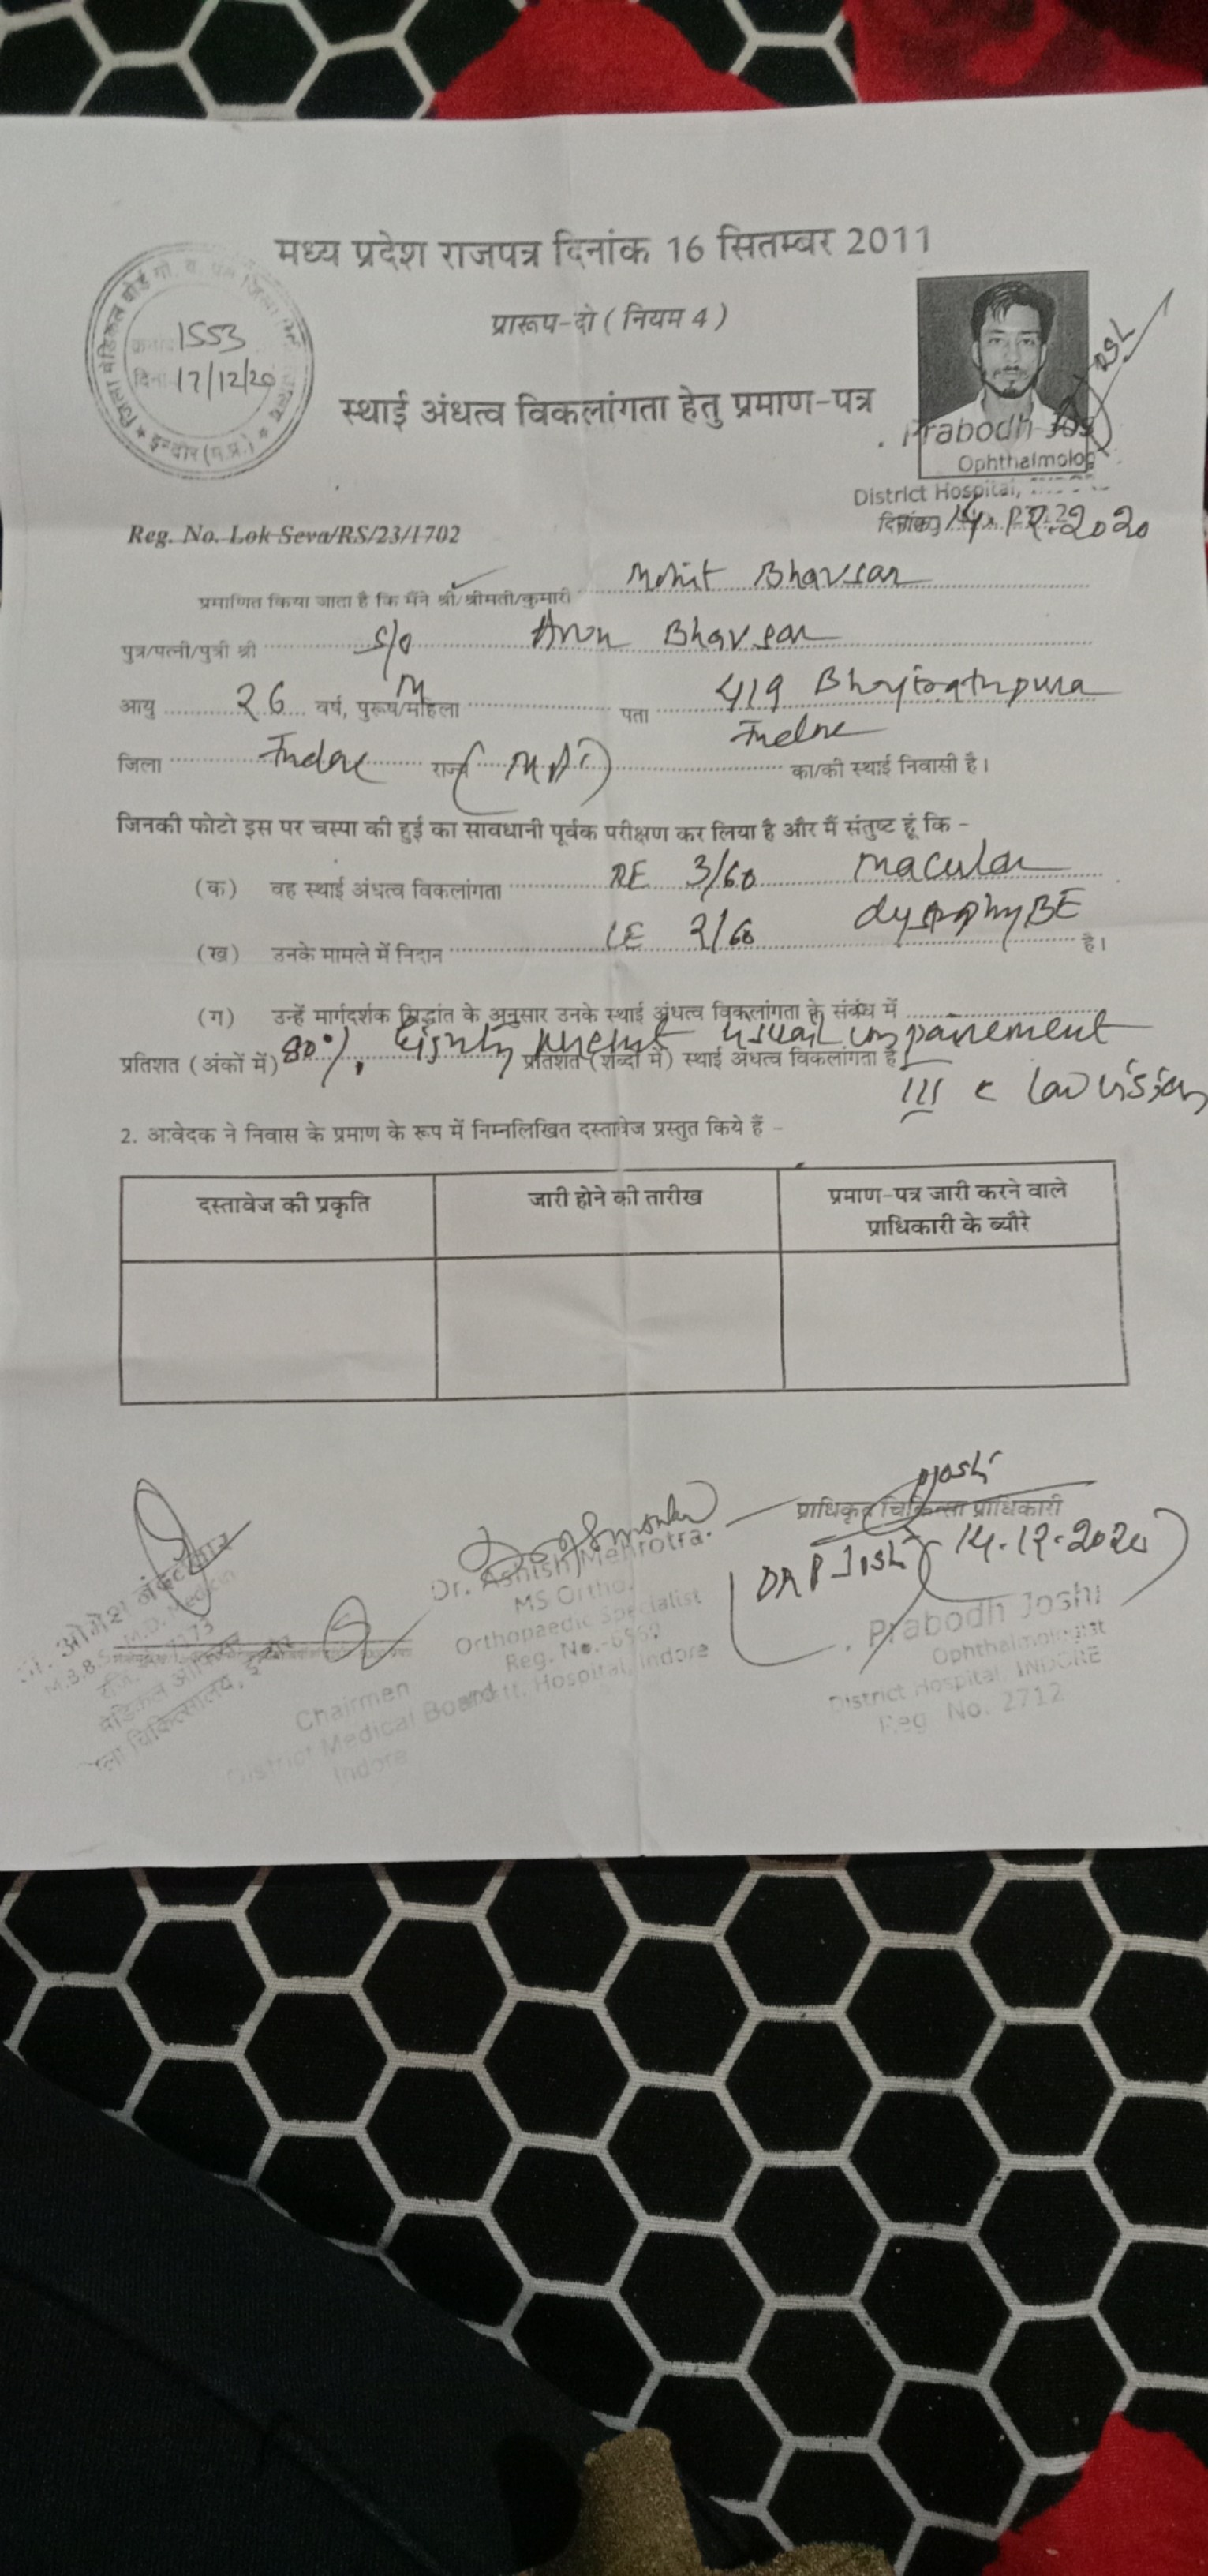 मध्य प्रदेश राजपत्र दिनांक 16 सितम्बर 2011
प्रारूप-दो ( नियम 4 )
जिला मेडिकल बोर्ड
1553
17/12/20
इन्दौर (म.प्र.)
स्थाई अंधत्व विकलांगता हेतु प्रमाण-पत्र
Prabodh Jos
Ophthalmolog
District Hospital,
दिनांक 14.12.2020
Reg. No. Lok Seva/RS/23/1702
प्रमाणित किया जाता है कि मैंने श्री/श्रीमती/कुमारी Mohit Bhavsar
पुत्र/पत्नी/पुत्री श्री S/o Arun Bhavsar
आयु 26 वर्ष, पुरूष/महिला M पता 419 Bhagirathpura
Indore
जिला Indore राज्य (M.P.) का/की स्थाई निवासी है।
जिनकी फोटो इस पर चस्पा की हुई का सावधानी पूर्वक परीक्षण कर लिया है और मैं संतुष्ट हूं कि -
(क) वह स्थाई अंधत्व विकलांगता RE 3/60 macular
(ख) उनके मामले में निदान LE 2/60 dystrophy BE है।
(ग) उन्हें मार्गदर्शक सिद्धांत के अनुसार उनके स्थाई अंधत्व विकलांगता के संबंध में
प्रतिशत (अंकों में) 80%, Eighty percent visual impairement प्रतिशत (शब्दों में) स्थाई अंधत्व विकलांगता है
III c Low vision
2. आवेदक ने निवास के प्रमाण के रूप में निम्नलिखित दस्तावेज प्रस्तुत किये हैं -
दस्तावेज की प्रकृति जारी होने की तारीख प्रमाण-पत्र जारी करने वाले
प्राधिकारी के ब्यौरे
प्राधिकृत चिकित्सा प्राधिकारी
(DR P Joshi) 14.12.2020
Dr. Ashish Mehrotra
MS Ortho.
Orthopaedic Specialist
Reg. No.
Hospital, Indore
Prabodh Joshi
Ophthalmologist
District Hospital, INDORE
Reg. No. 2712
Chairmen
District Medical Board
Indore